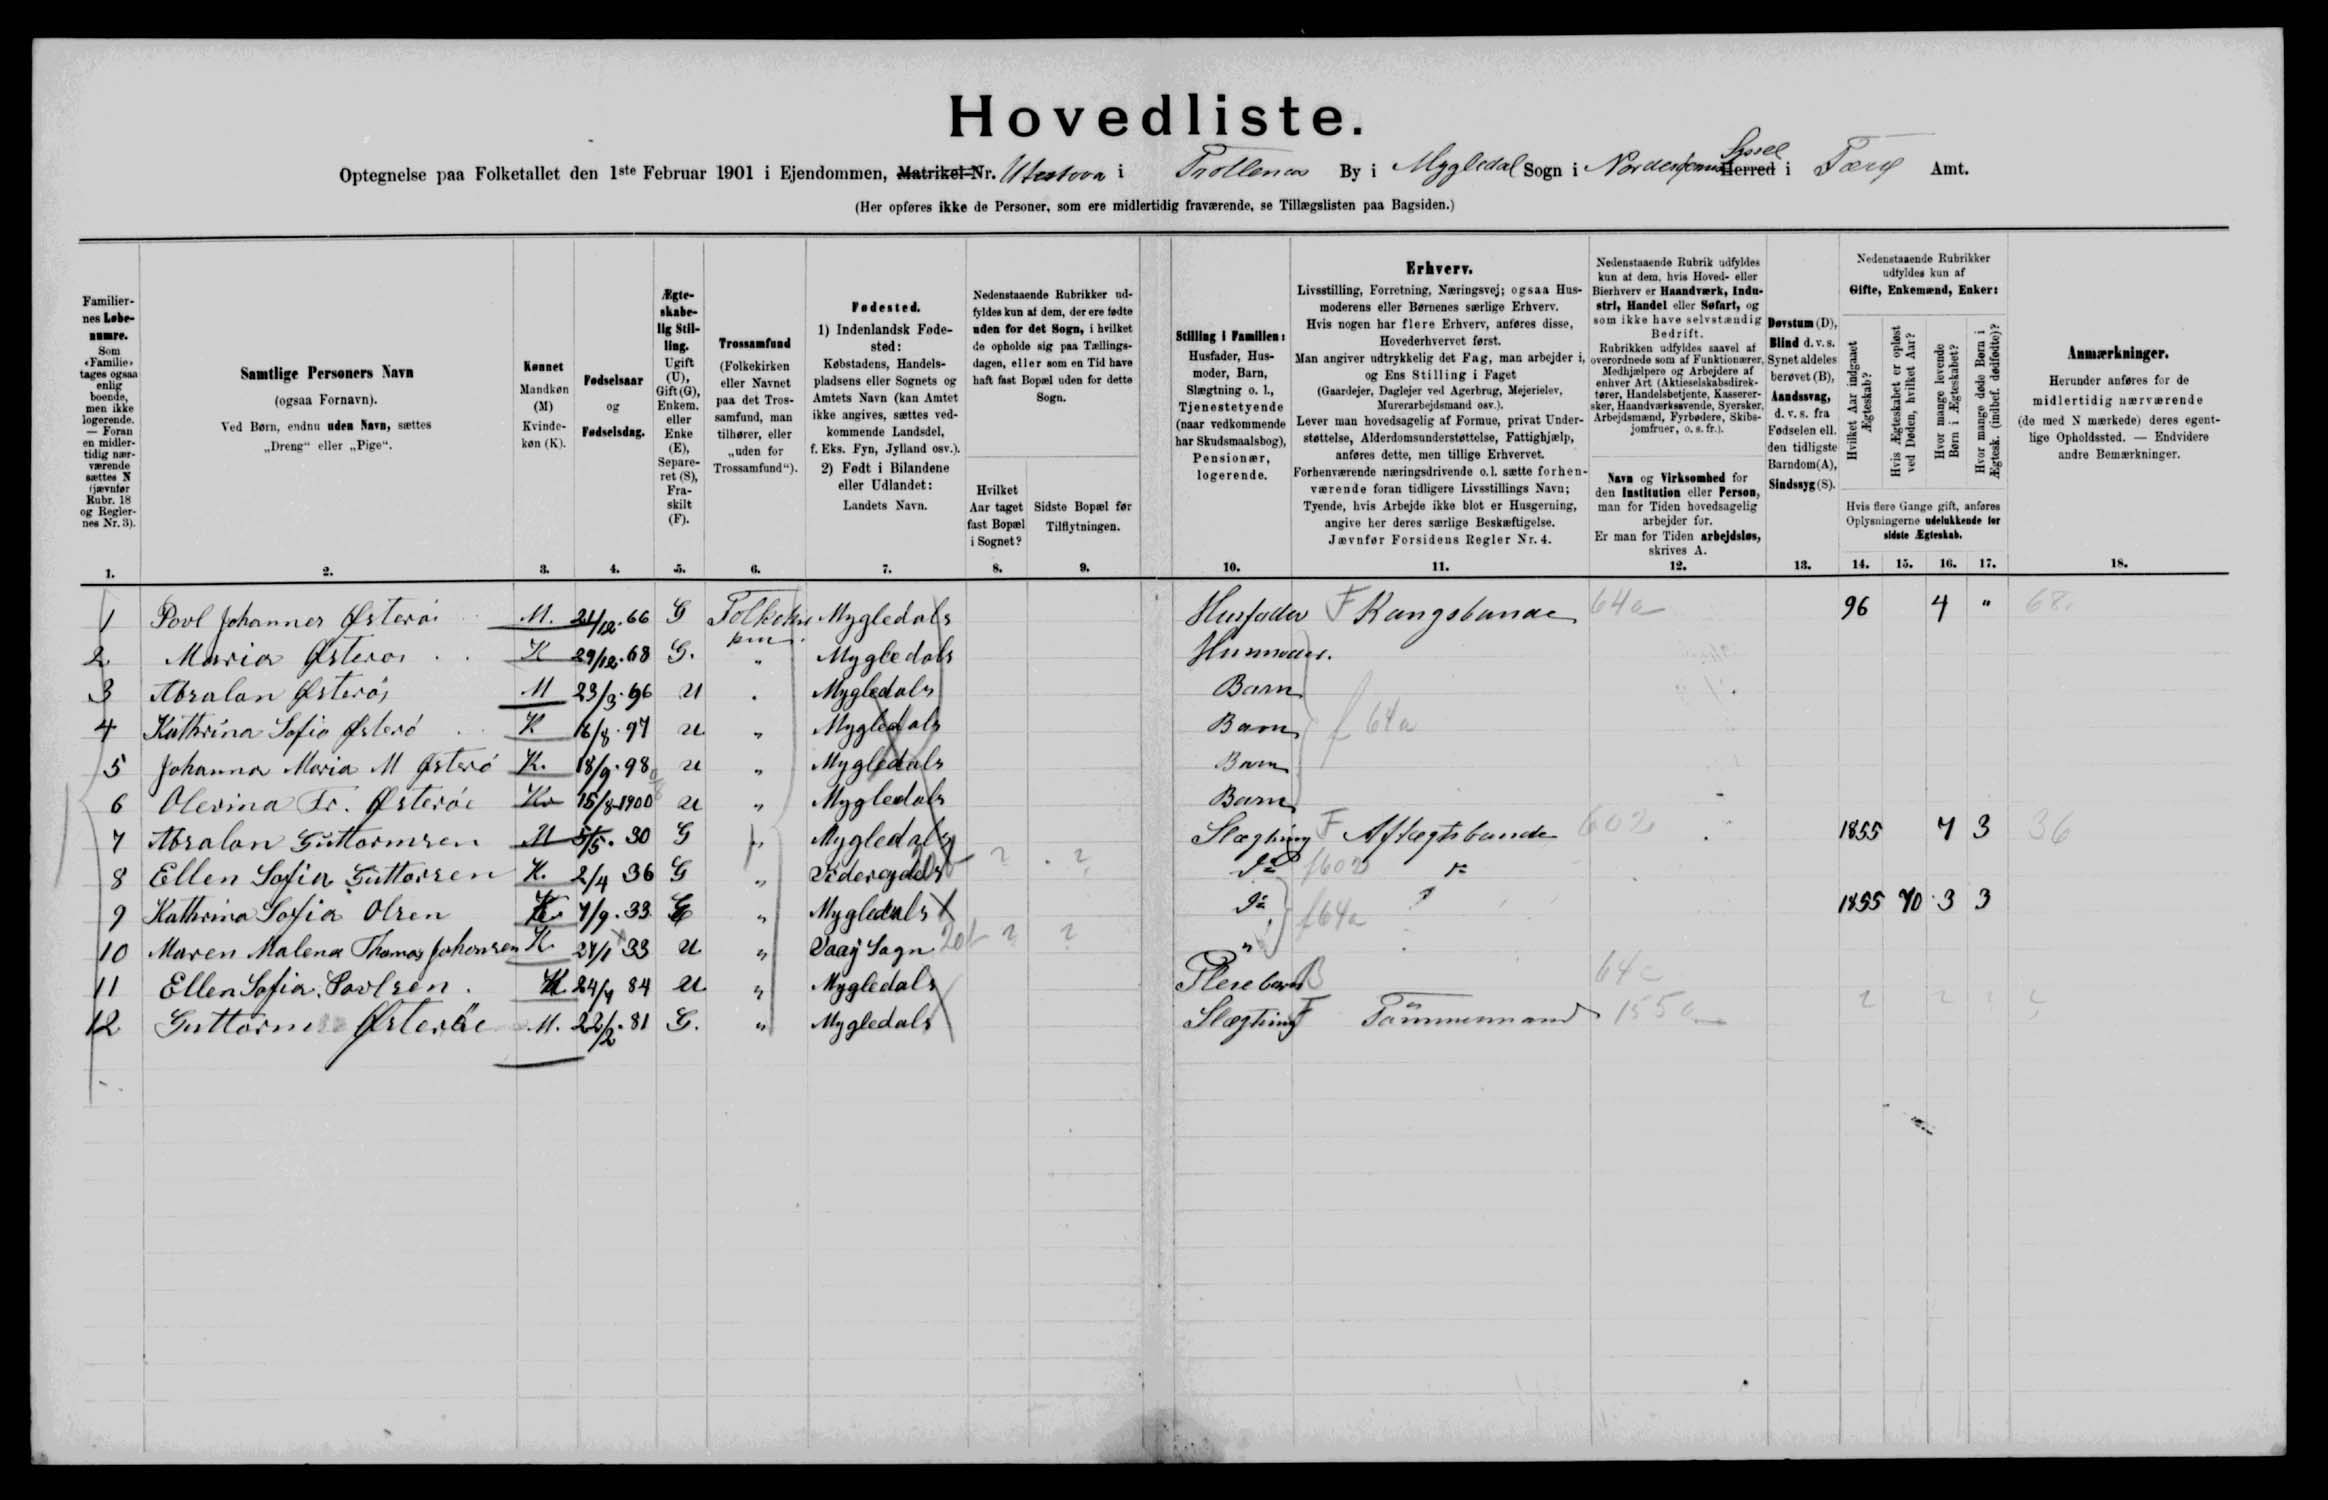 Hovedliste.
Optegnelse paa Folketallet den 1ste Februar 1901 i Ejendommen, Matrikel-Nr. i Trollenes By i Mygledal Sogn i Norderøernes Herred Syssel i Færø Amt.
(Her opføres ikke de Personer, som ere midlertidig fraværende, se Tillægslisten paa Bagsiden.)
Familiernes Løbenumre. Som «Familie» tages ogsaa enlig boende, men ikke logerende. — Foran en midlertidig nærværende sættes N (jævnfør Rubr. 18 og Reglernes Nr. 3).
Samtlige Personers Navn (ogsaa Fornavn). Ved Børn, endnu uden Navn, sættes „Dreng“ eller „Pige“.
Kønnet Mandkøn (M) Kvindekøn (K).
Fødselsaar og Fødselsdag.
Ægteskabelig Stilling. Ugift (U), Gift (G), Enkem. eller Enke (E), Separeret (S), Fraskilt (F).
Trossamfund (Folkekirken eller Navnet paa det Trossamfund, man tilhører, eller „uden for Trossamfund“).
Fødested. 1) Indenlandsk Fødested: Købstadens, Handelspladsens eller Sognets og Amtets Navn (kan Amtet ikke angives, sættes vedkommende Landsdel, f. Eks. Fyn, Jylland osv.). 2) Født i Bilandene eller Udlandet: Landets Navn.
Nedenstaaende Rubrikker udfyldes kun af dem, der ere fødte uden for det Sogn, i hvilket de opholde sig paa Tællingsdagen, eller som en Tid have haft fast Bopæl uden for dette Sogn.
Hvilket Aar taget fast Bopæl i Sognet?
Sidste Bopæl før Tilflytningen.
Stilling i Familien: Husfader, Husmoder, Barn, Slægtning o. l., Tjenestetyende (naar vedkommende har Skudsmaalsbog), Pensionær, logerende.
Erhverv.
Livsstilling, Forretning, Næringsvej; ogsaa Husmoderens eller Børnenes særlige Erhverv.
Hvis nogen har flere Erhverv, anføres disse, Hovederhvervet først.
Man angiver udtrykkelig det Fag, man arbejder i, og Ens Stilling i Faget
(Gaardejer, Daglejer ved Agerbrug, Mejerielev, Murerarbejdsmand osv.).
Lever man hovedsagelig af Formue, privat Understøttelse, Alderdomsunderstøttelse, Fattighjælp, anføres dette, men tillige Erhvervet.
Forhenværende næringsdrivende o. l. sætte forhenværende foran tidligere Livsstillings Navn;
Tyende, hvis Arbejde ikke blot er Husgerning, angive her deres særlige Beskæftigelse.
Jævnfør Forsidens Regler Nr. 4.
Nedenstaaende Rubrik udfyldes kun af dem, hvis Hoved- eller Bierhverv er Haandværk, Industri, Handel eller Søfart, og som ikke have selvstændig Bedrift.
Rubrikken udfyldes saavel af overordnede som af Funktionærer, Medhjælpere og Arbejdere af enhver Art (Aktieselskabsdirektører, Handelsbetjente, Kasserersker, Haandværkssvende, Syersker, Arbejdsmænd, Fyrbødere, Skibsjomfruer, o. s. fr.).
Navn og Virksomhed for den Institution eller Person, man for Tiden hovedsagelig arbejder for.
Er man for Tiden arbejdsløs, skrives A.
Døvstum (D), Blind d. v. s. Synet aldeles berøvet (B), Aandssvag, d. v. s. fra Fødselen ell. den tidligste Barndom (A), Sindssyg (S).
Nedenstaaende Rubrikker udfyldes kun af Gifte, Enkemænd, Enker:
Hvilket Aar indgaaet Ægteskab?
Hvis Ægteskabet er opløst ved Døden, hvilket Aar?
Hvor mange levende Børn i Ægteskabet?
Hvor mange døde Børn i Ægtesk. (indbef. dødfødte)?
Hvis flere Gange gift, anføres Oplysningerne udelukkende for sidste Ægteskab.
Anmærkninger.
Herunder anføres for de midlertidig nærværende (de med N mærkede) deres egentlige Opholdssted. — Endvidere andre Bemærkninger.
1. 2. 3. 4. 5. 6. 7. 8. 9. 10. 11. 12. 13. 14. 15. 16. 17. 18.
1 Povl Johannes Østerøi M. 21/12.66 G Mygledals Husfader F Kongsbonde 64a 96 4 " 68
2 Maria Østerøi K 29/12.68 G. " Mygledals Husmoder.
3 Absalon Østerøi M 23/3.96 U . Mygledals Barn
4 Kathrina Sofia Østerö K 16/8.97 U " Mygledals Barn f 64a
5 Johanna Maria M Østerö K. 18/9.98 U " Mygledals Barn
6 Olevina Fr. Østerøe K 15/8 1900 U " Mygledals Barn
7 Absalon Guttormsen M 5/5.30 G " Mygledals Slægtning F Aftægtsbonde 602 1855 7 3 36
8 Ellen Sofia Guttorsen K. 2/4 36 G " ? ? do f602
9 Kathrina Sofia Olsen K 7/9.33 E " Mygledals do f64a 1855 70 3 3
10 Maren Malena Thomas Johansen K 24/1 33 U " Vaay Sogn ? ? "
11 Ellen Sofia Povlsen. K 24/4 84 U " Mygledals Plesebarn B 64c
12 Guttorm Østeröe M. 22/2.81 G. " Mygledals Slægtning F Tömmermand 155a ? ? ? ?